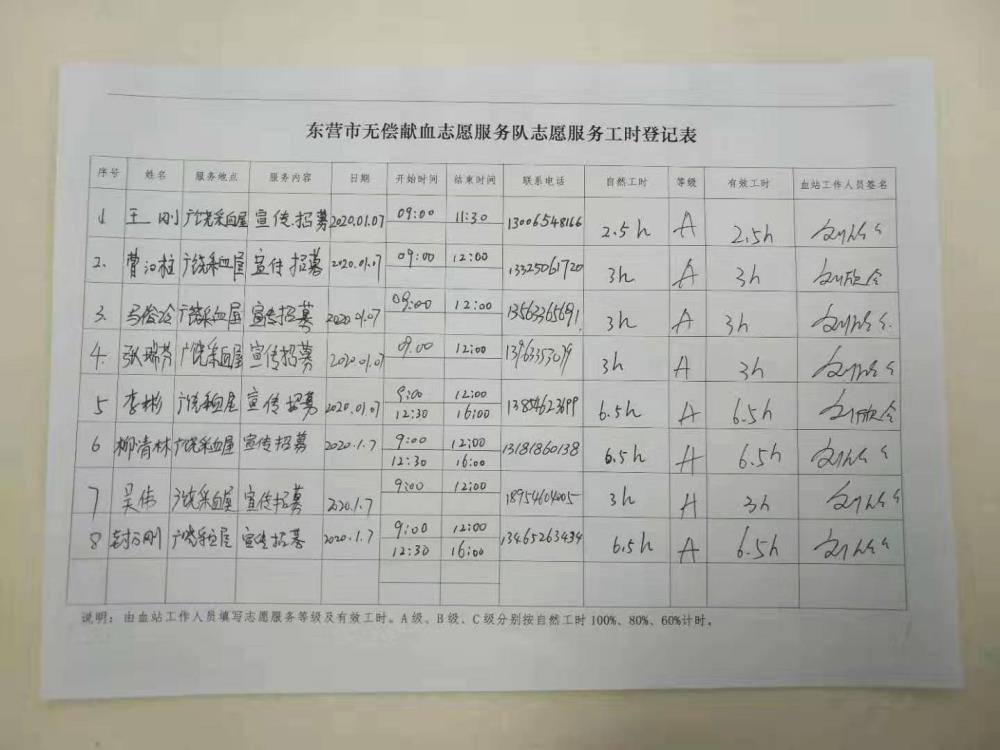 东营市无偿献血志愿服务队志愿服务工时登记表
序号 姓名 服务地点 服务内容 日期 开始时间 结束时间 联系电话 自然工时 等级 有效工时 血站工作人员签名
1 王刚 广饶采血屋 宣传.招募 2020.01.07 09:00 11:30 13006548166 2.5h A 2.5h
2. 曹 广饶采血屋 宣传招募 2020.01.07 09:00 12:00 13325061720 3h A 3h
3. 广饶采血屋 宣传招募 2020.01.07 09:00 12:00 13563365691 3h A 3h
4. 张瑞芬 广饶采血屋 宣传招募 2020.01.07 09.00 12:00 3h A 3h
5 李彬 广饶采血屋 宣传招募 2020.01.07 9:00 12:00 6.5h A 6.5h
12:30 16:00
6 柳清林 广饶采血屋 宣传招募 2020.1.7 9:00 12:00 13181860138 6.5h A 6.5h
12:30 16:00
7 吴伟 广饶采血屋 宣传招募 2020.1.7 9:00 12:00 18954604005 3h A 3h
8 刚 广饶采血屋 宣传招募 2020.1.7 9:00 12:00 13465263434 6.5h A 6.5h
12:30 16:00
说明：由血站工作人员填写志愿服务等级及有效工时。A级、B级、C级分别按自然工时100%、80%、60%计时。